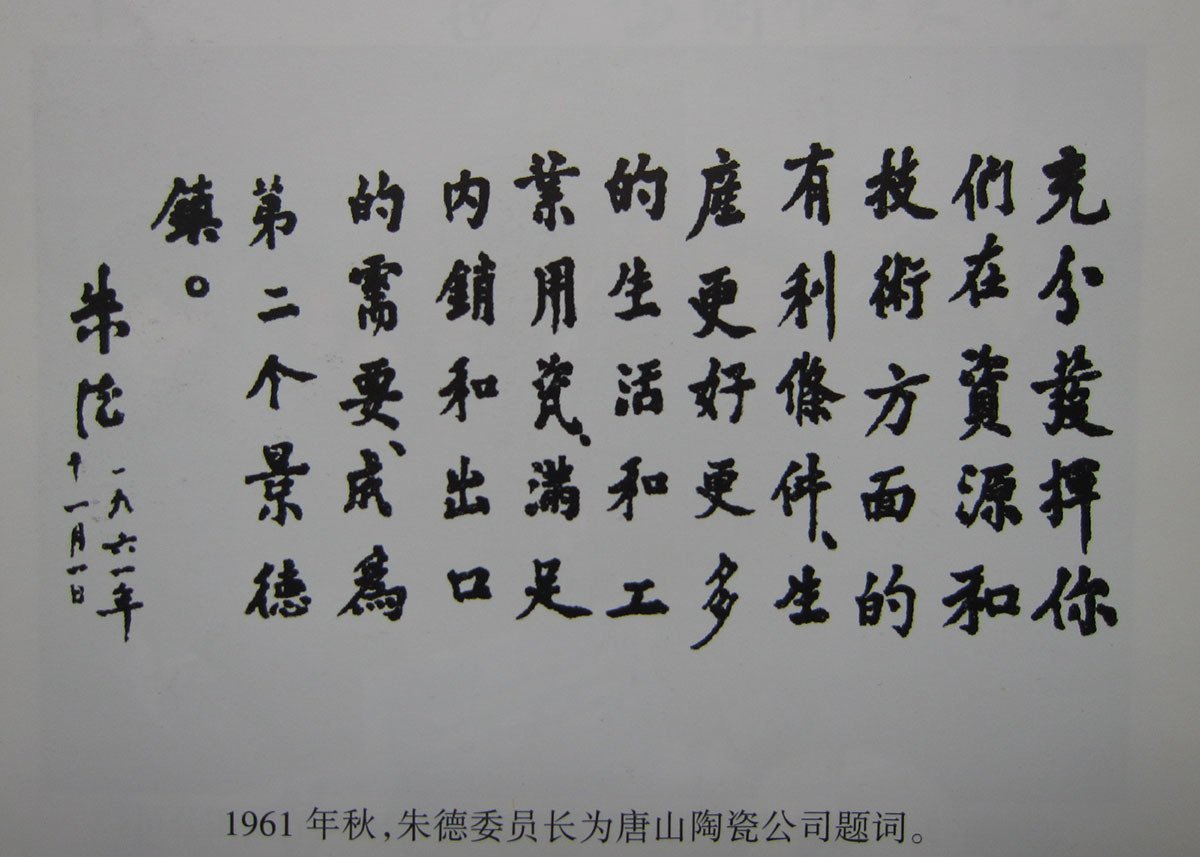 充分發揮你
們在資源和
技術方面的
有利條件、生
產更好更多
的生活和工
業用瓷、滿足
内銷和出口
的需要、成為
第二个景德
鎮。
朱德
一九六一年
十一月一日
1961 年秋,朱德委员长为唐山陶瓷公司题词。